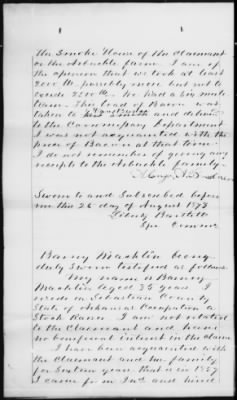 the Smoke House of the Claimant
on the Arbuckle farm. I am of
the opinion that we took at least
2000 lbs. possibly more but not to
exceede 2500 lbs. We had a six mule
team. This load of Bacon was
taken to and deliver
to the Commissary Department
I was not acquainted with the
price of Bacon at that time.
I do not remember of giving any
receipts to the Arbuckle family.
Sworn to and Subscribed before
me this 25 day of August 1873
Spl Commr
Barney Mashlin being
duly Sworn testified as follows
My name is Barney
Mashlin aged 35 years I
reside in Sebastian County
State of Arkansas Occupation a
Stock Raiser. I am not related
to the Claimant and have
no beneficial interest in the claim
I have been acquainted with
the Claimant and her family
for Sixteen years that is in 1857
I came from Ind and hired